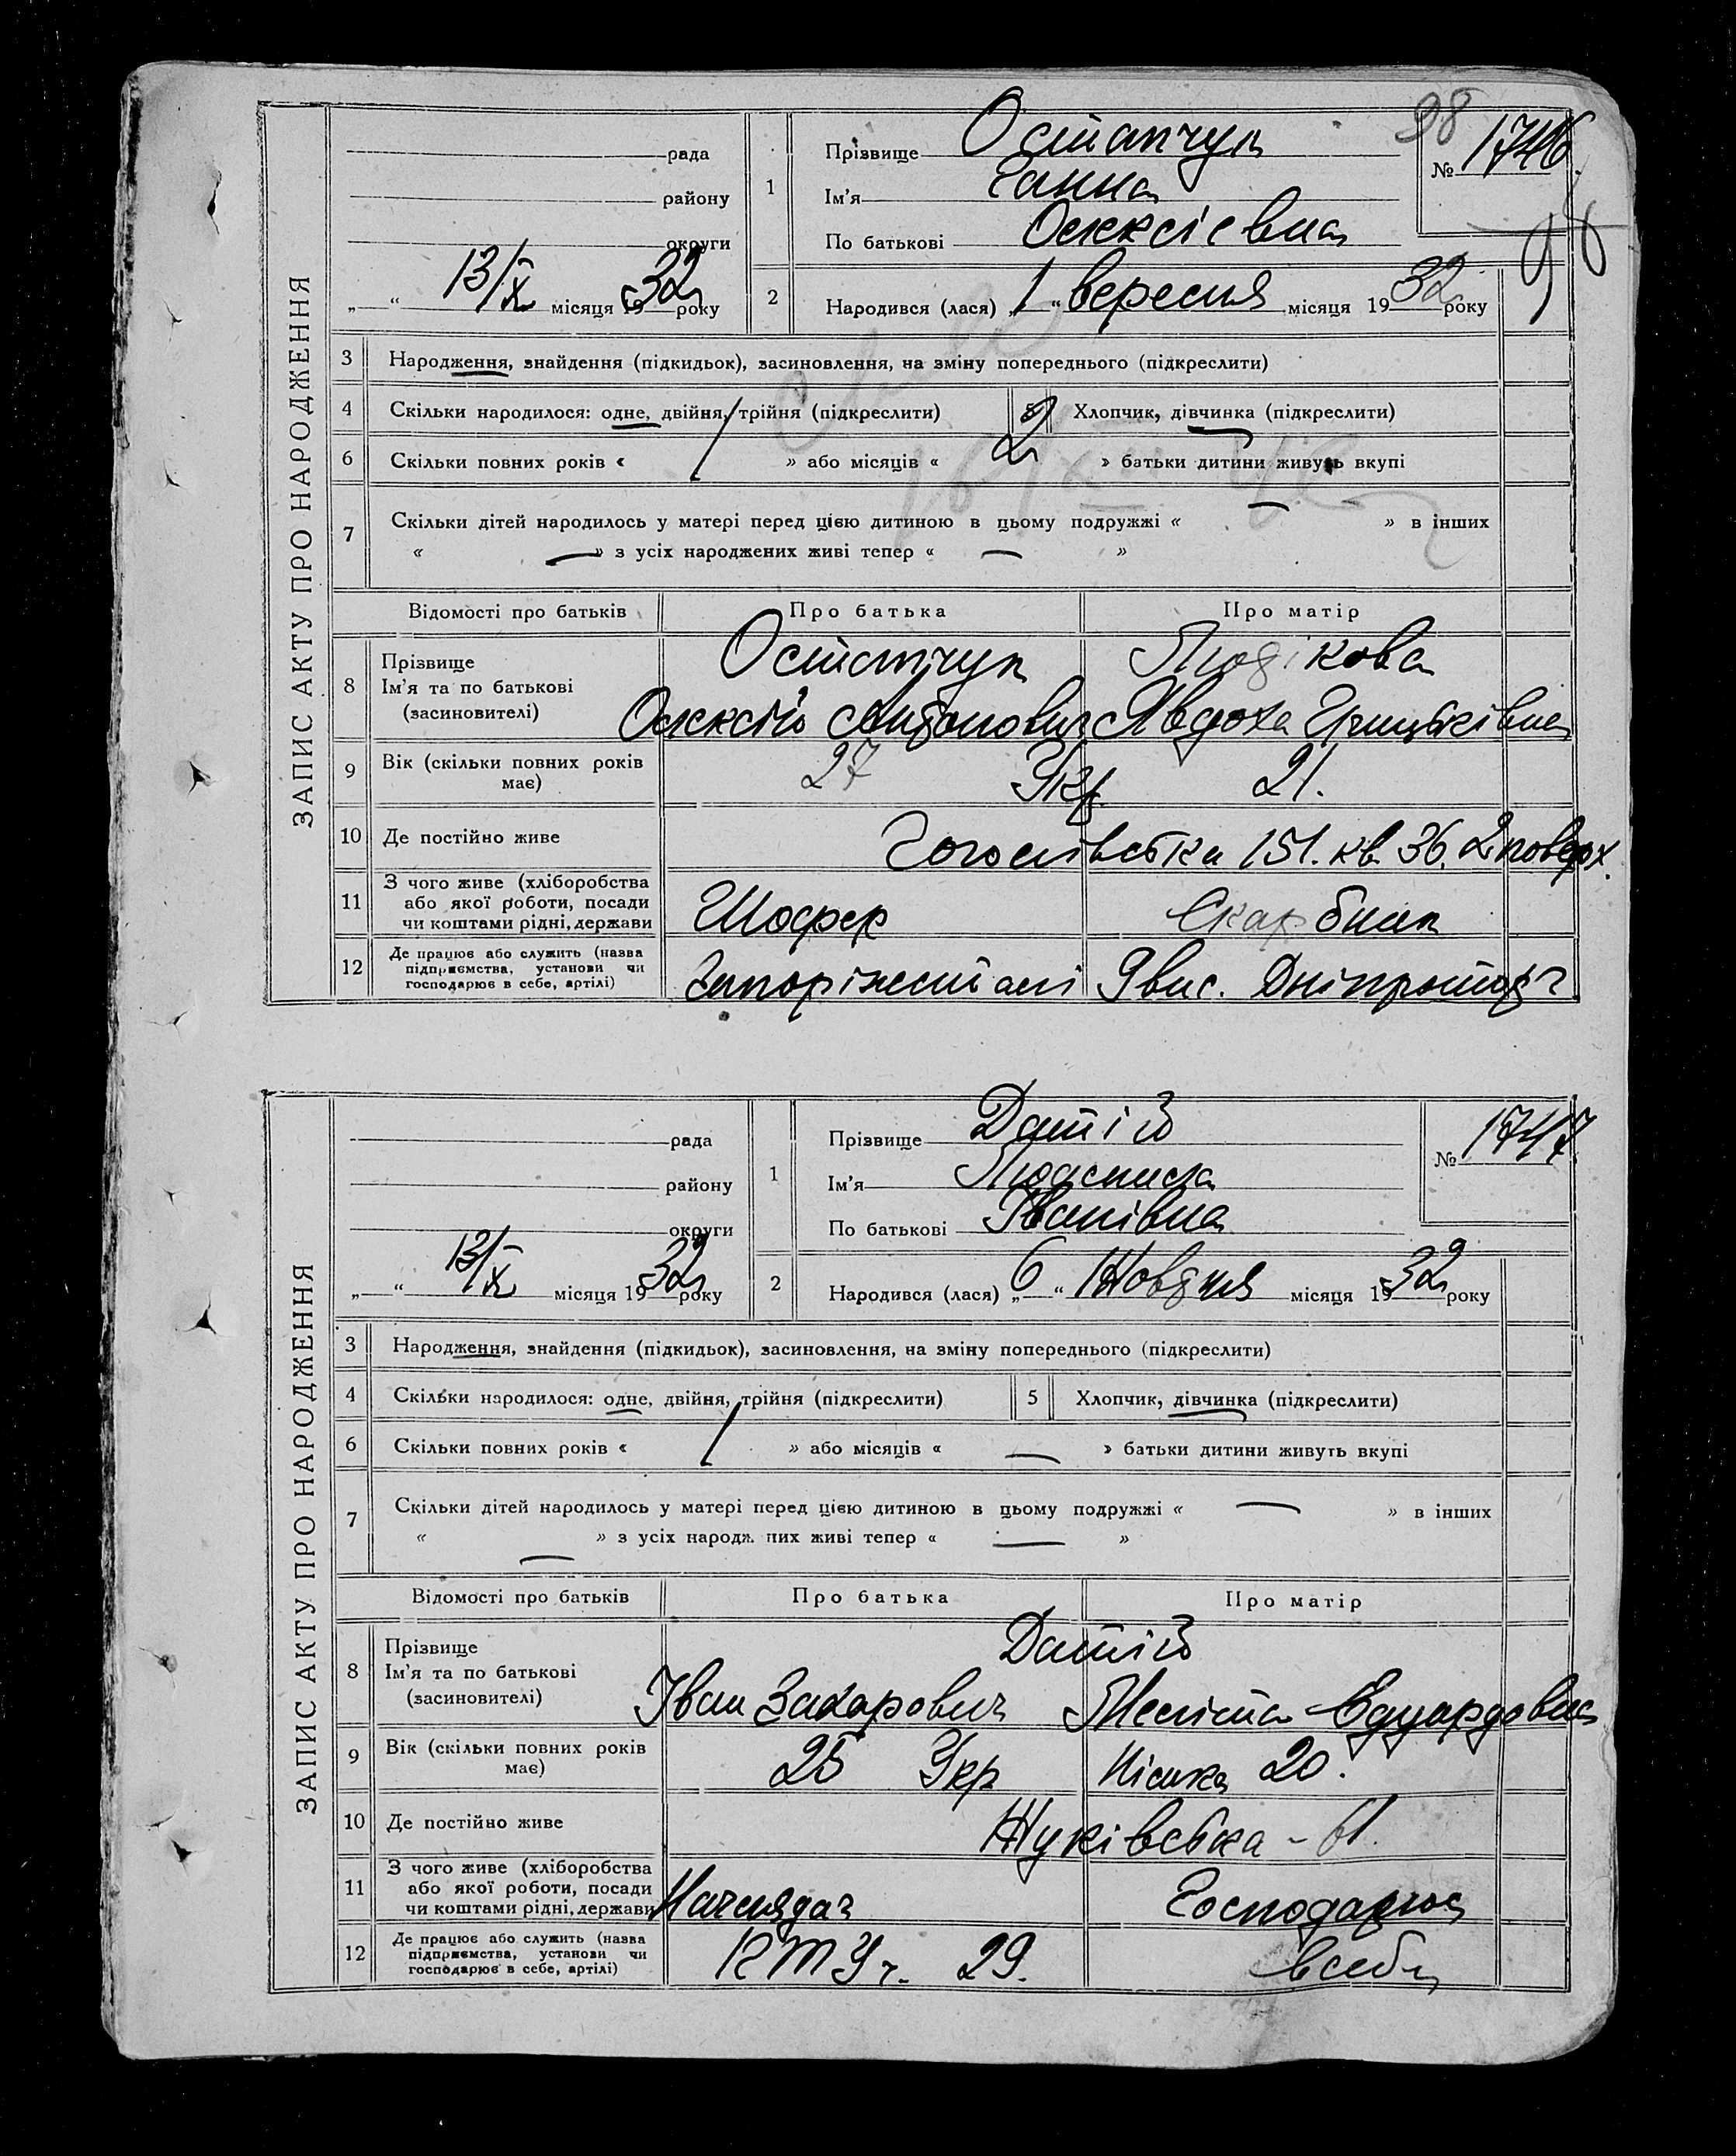 ЗАПИС АКТУ ПРО НАРОДЖЕННЯ
98
рада
району
округи
„ “ 13/X місяця 1932 року
1
Прізвище Остапчук
Ім'я Ганна
По батькові Олексієвна
№ 1746.
98
2
Народився (лася) „1“ вересня місяця 1932 року
3 Народження, знайдення (підкидьок), засиновлення, на зміну попереднього (підкреслити)
4 Скільки народилося: одне, двійня, трійня (підкреслити) 5 Хлопчик, дівчинка (підкреслити)
6 Скільки повних років « / » або місяців « 2 » батьки дитини живуть вкупі
7 Скільки дітей народилось у матері перед цією дитиною в цьому подружжі « — » в інших
« — » з усіх народжених живі тепер « — »
Відомості про батьків Про батька Про матір
8 Прізвище Ім'я та по батькові (засиновителі)
Остапчук Людікова
Олексій Антонович Явдоха Грицьківна
9 Вік (скільки повних років має) 27 Укр. 21.
10 Де постійно живе Гоголівська 151. кв. 36. 2 поверх.
11 З чого живе (хліборобства або якої роботи, посади чи коштами рідні, держави Шофер Скарбник
12 Де працює або служить (назва підприємства, установи чи господарює в себе, артілі) Запоріжсталі Явис. Дніпроторг
ЗАПИС АКТУ ПРО НАРОДЖЕННЯ
рада
району
округи
„ “ 13/X місяця 1932 року
1
Прізвище Датій
Ім'я Людмила
По батькові Іванівна
№ 1747.
2
Народився (лася) „6“ Жовтня місяця 1932 року
3 Народження, знайдення (підкидьок), засиновлення, на зміну попереднього (підкреслити)
4 Скільки народилося: одне, двійня, трійня (підкреслити) 5 Хлопчик, дівчинка (підкреслити)
6 Скільки повних років « / » або місяців « — » батьки дитини живуть вкупі
7 Скільки дітей народилось у матері перед цією дитиною в цьому подружжі « — » в інших
« — » з усіх народж них живі тепер « — »
Відомості про батьків Про батька Про матір
8 Прізвище Ім'я та по батькові (засиновителі)
Датій
Іван Захарович Меліта Едуардовна
9 Вік (скільки повних років має) 25 Укр Німка 20.
10 Де постійно живе Жуківська - 61.
11 З чого живе (хліборобства або якої роботи, посади чи коштами рідні, держави Наглядач Господарює
12 Де працює або служить (назва підприємства, установи чи господарює в себе, артілі) 29. в себе